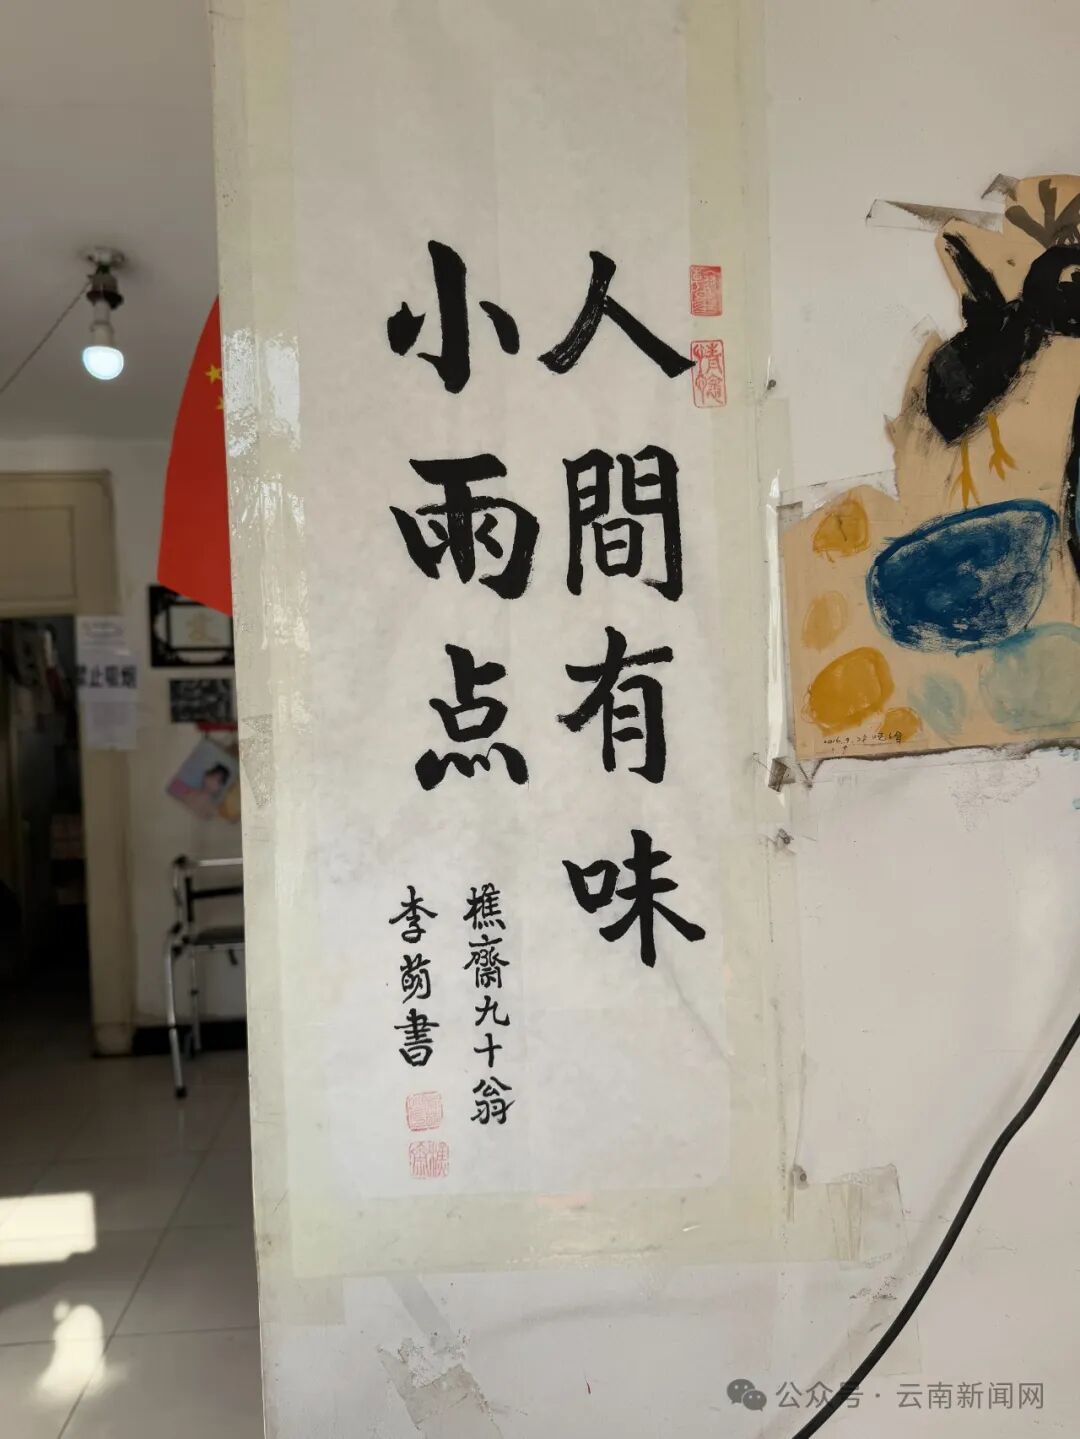 人間有味
小雨点
樵齋九十翁
李萌書
禁止吸烟
公众号·云南新闻网